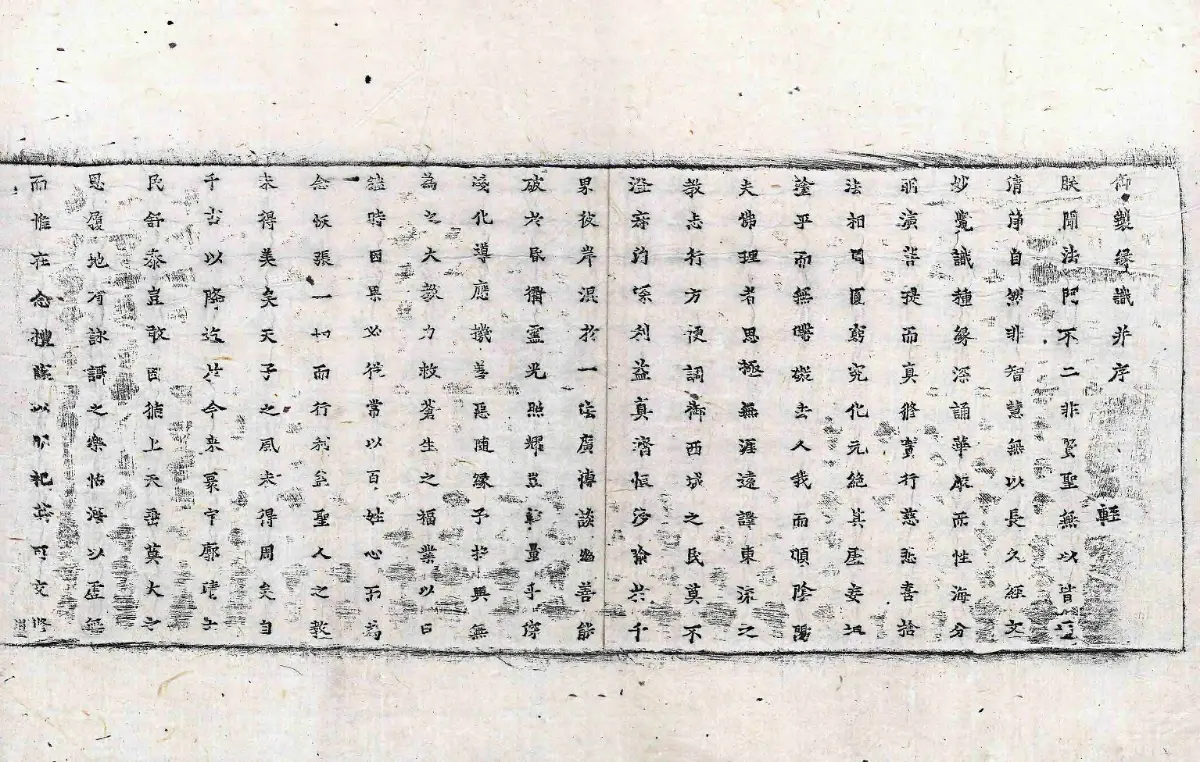 御製緣識并序 輕
朕聞法門不二非賢聖無以皆
清淨自然非智慧無以長久經文
妙覺識種緣深誦華嚴而性海分
明演菩提而真修實行慈悲喜捨
法相圓匱窮究化元能其虛妄
塗乎而無去人我而順陰陽
夫佛理者思極無涯遠譯東流之
教志行方便調御西域之民莫不
澄寂約深利益真濟恒沙喻共千
界彼岸混於一家廣博談幽善能
破於昏衢靈光照耀豈量乎
化導應機善惡隨緣予非興無
為之大教力救蒼生之福業以日
繼時因果必從常以百姓心而為
念恢張一切而行利益聖人之教
未得美矣天子之風未得周矣自
千古以降迄於今來寰宇廓清士
民舒泰豈敢因循上天垂莫大之
恩履地有詠謌之樂怙海以無
而惟在念禮陳以郊祀可文修